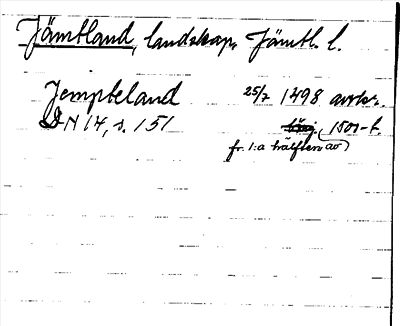 Jämtland, landskap, Jämtl. l.
Jempteland 25/7 1498 avskr.
DN 14, s. 151 1500-t.
fr. 1:a hälften av